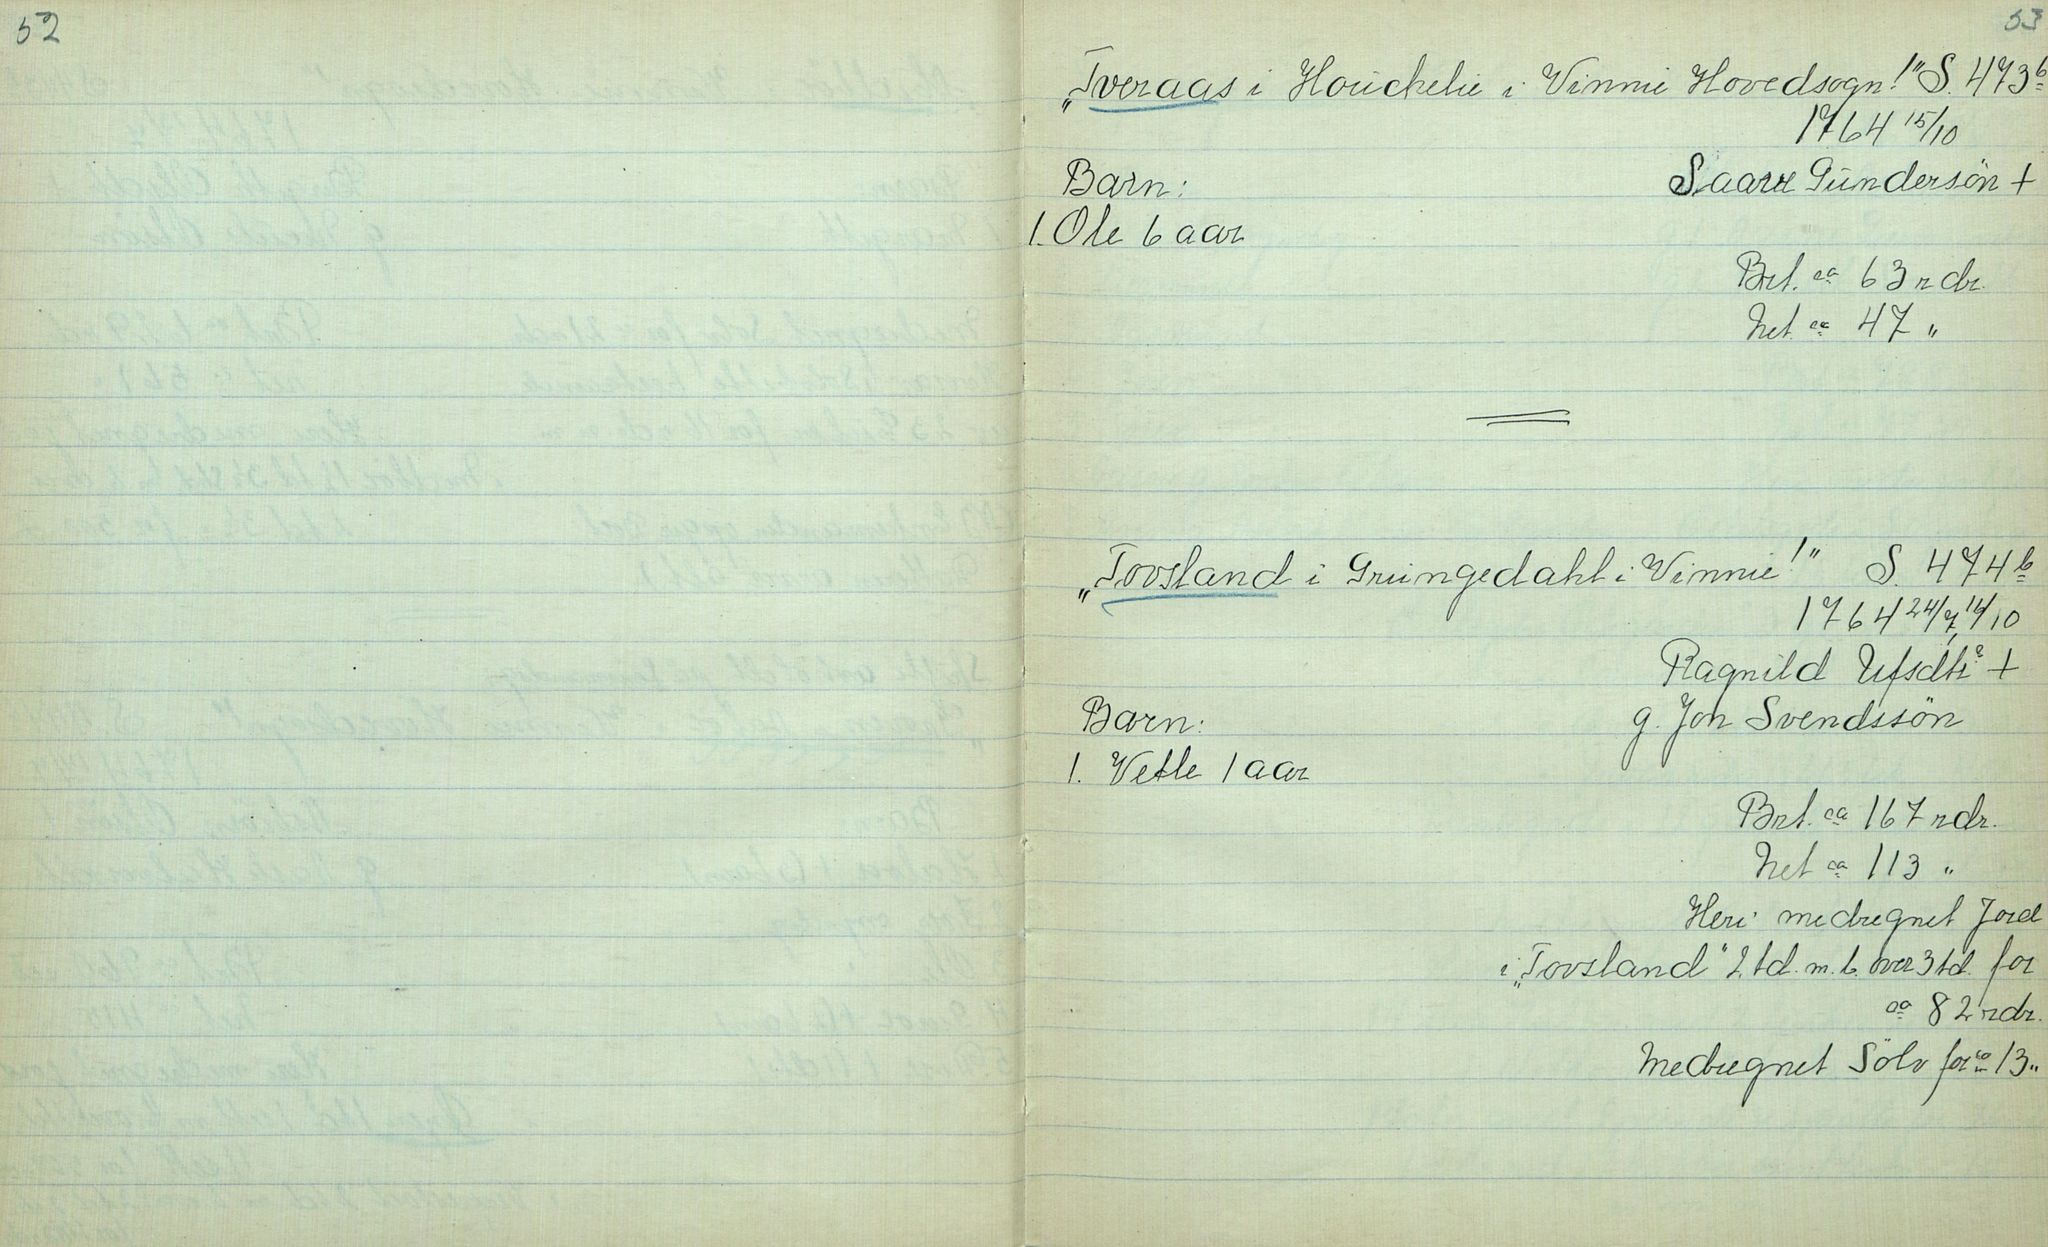 52
53
"Tveraas i Houchelie i Vinnie Hovedsogn!" S. 473b
1764 15/10
Barn: Saave Gundersön +
1. Ole 6 aar
Brt. ca 63 rdr.
Net. ca 47 "
"Tovsland i Grungedahl i Vinnie!" S. 474b
1764 24/7, 14/10
Ragnild Ufsdtr +
Barn: g. Jon Svendssön
1. Vetle 1 aar
Brt. ca 167 rdr.
Net ca 113 "
Heri medregnet Jord
i "Tovsland" 2 td. m. b. over 3 td. for
ca 82 rdr.
Medregnet Sölv for ca 13 "